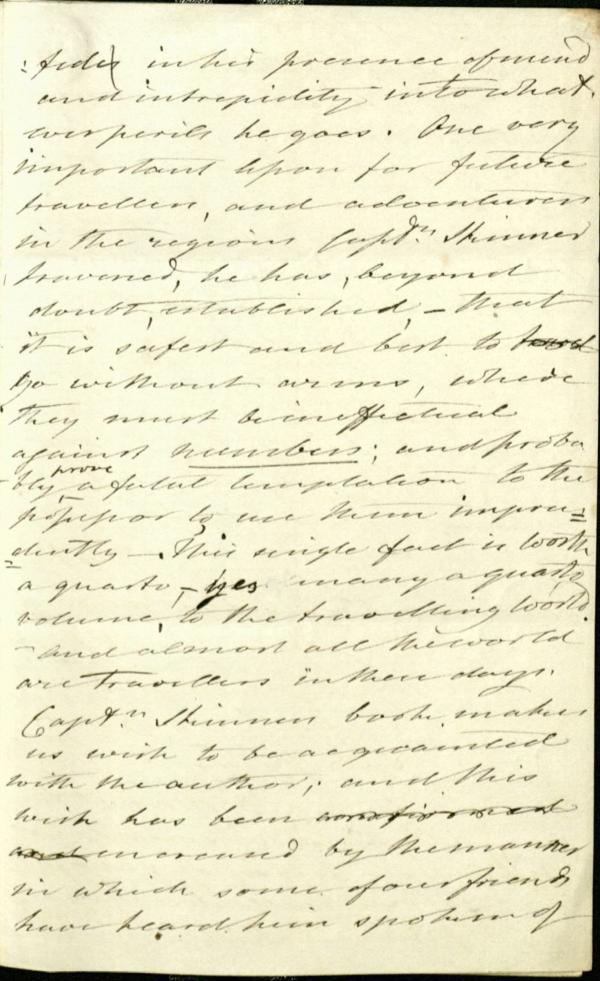 : fides in his presence of mind
and intrepidity into what
ever perils he goes. One very
important upon for future
travellers, and adventurers
in the regions Captn. Skinner
traversed, he has, beyond
doubt, established, – that
it is safest and best to travel
go without arms, where
they must be ineffectual
against numbers; and proba
-bly prove a fatal temptation to the
possessor to use them impru=
=dently – This single fact is worth
a quarto, – yes many a quarto
volume, to the travelling world.
– and almost all the world
are travellers in these days.
Captn. Skinners book makes
us wish to be acquainted
with the author; and this
wish has been confirmed
and encreased by the manner
in which some of our friends
have heard him spoken of